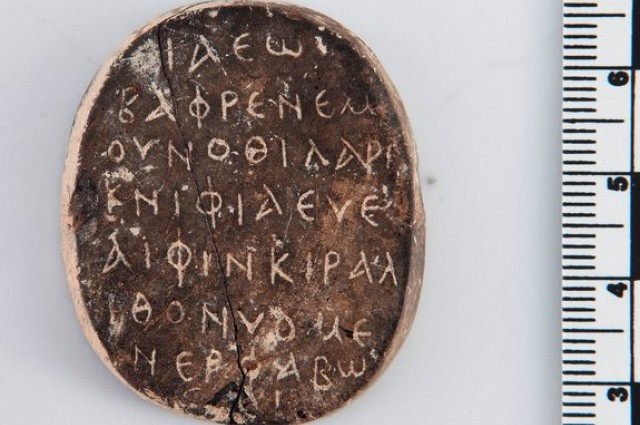 ΙΑΕω
ΒΑΦΡΕΝΕΜ
ΟΥΝΟΘΙΛΑΡΙ
ΚΝΙΦΙΑΕΥΕ
ΑΙΦΙΝΚΙΡΑΛ
ΙΘΟΝΥΟΜΕ
ΝΕΡΦΑΒω
6
5
4
3